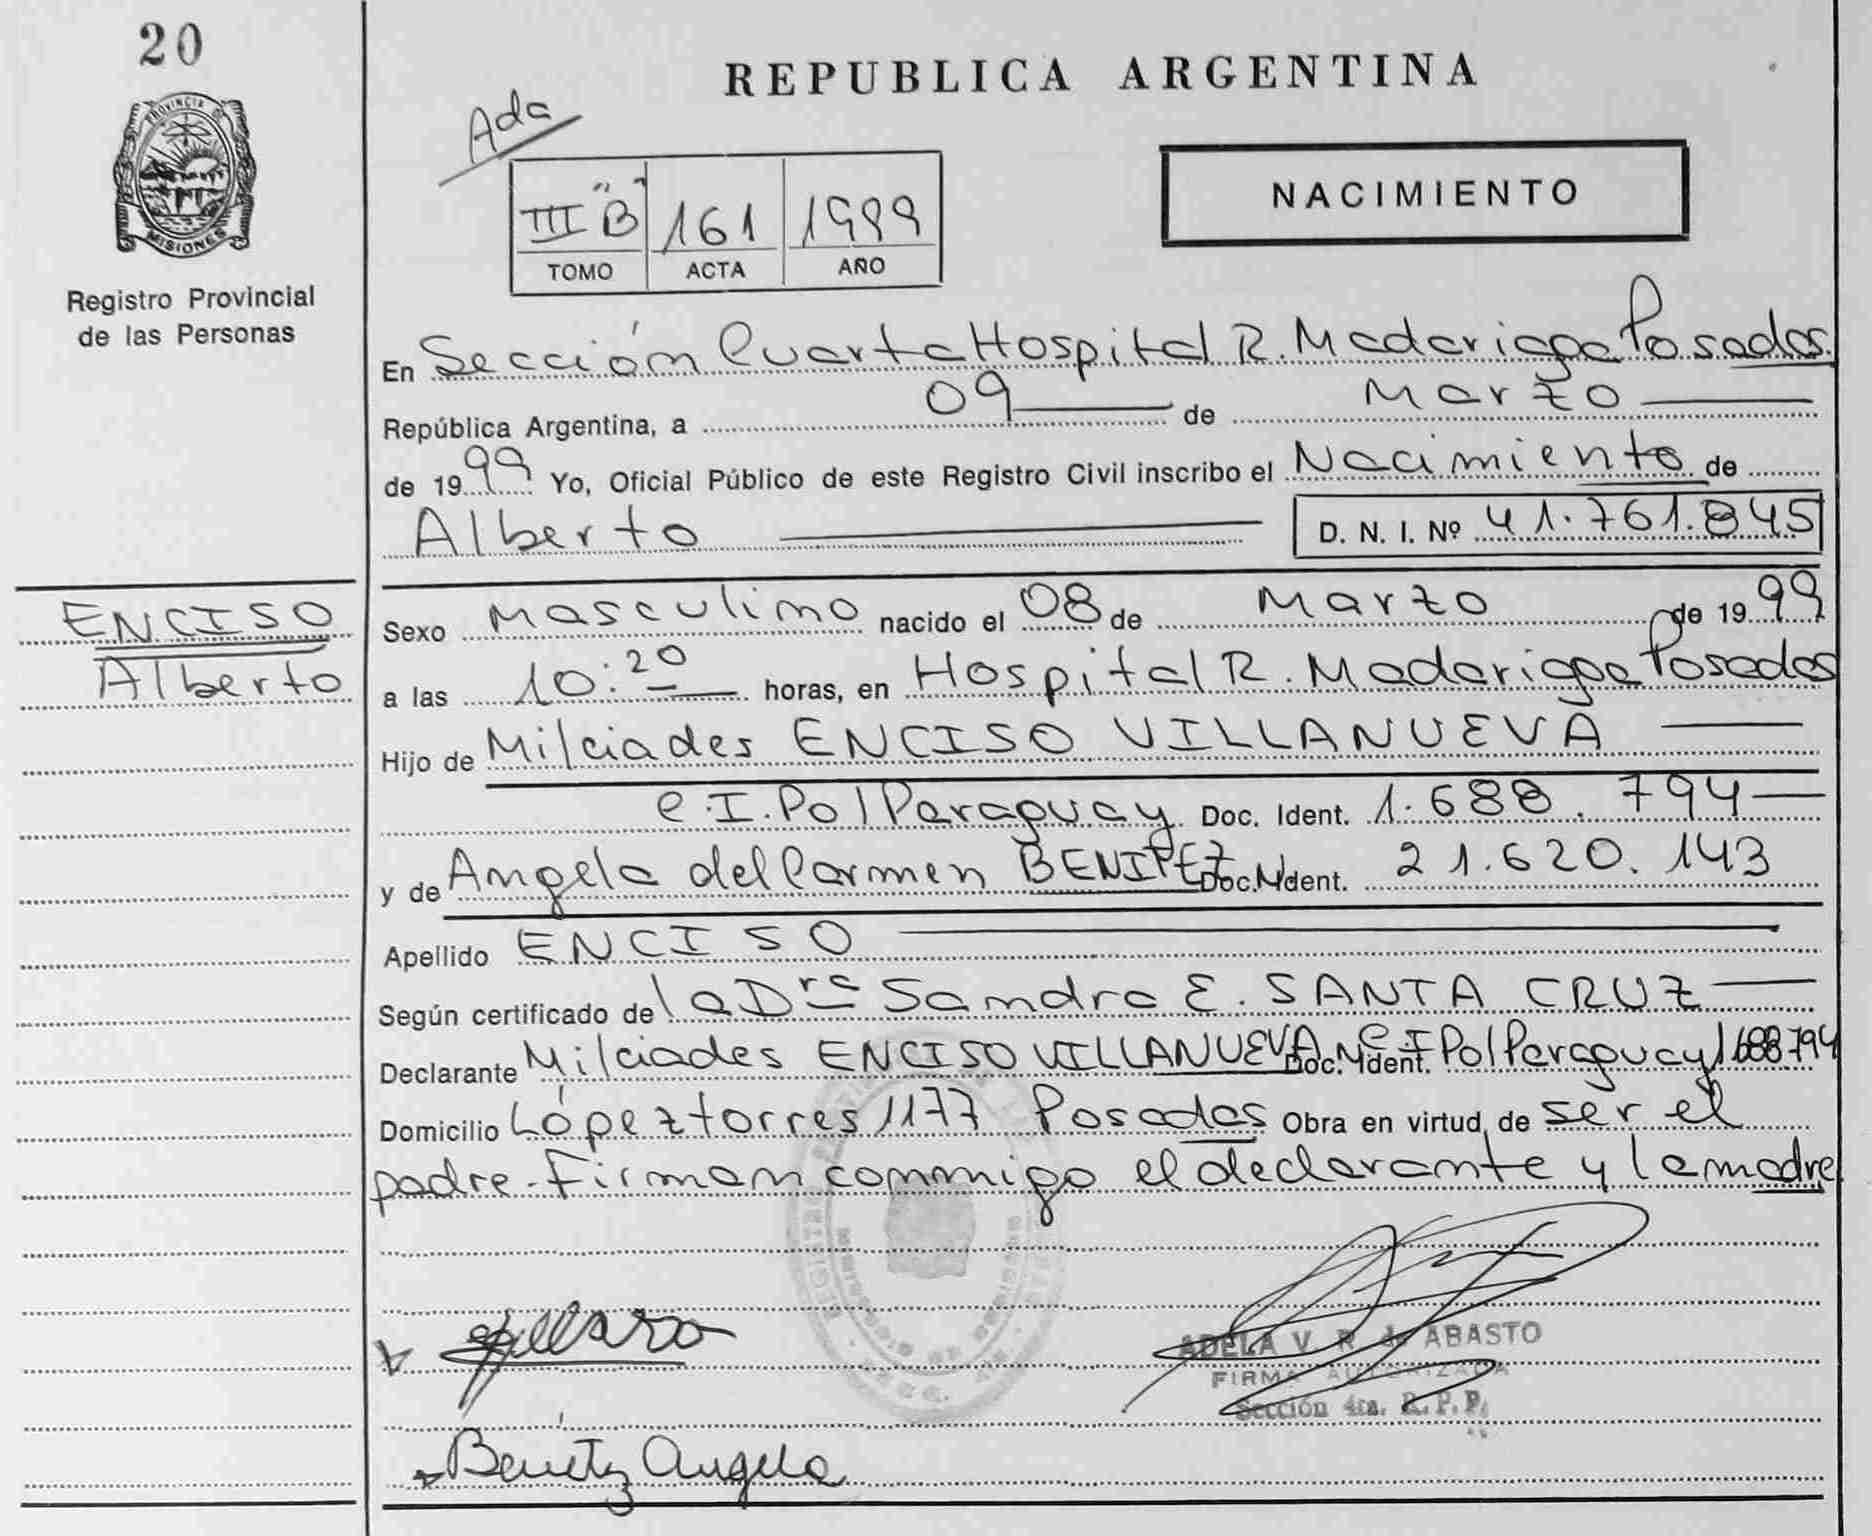 20
PROVINCIA DE
MISIONES
Registro Provincial
de las Personas
REPUBLICA ARGENTINA
Ada
III "B" 161 1999
TOMO ACTA AÑO
NACIMIENTO
En Sección Cuarta Hospital R. Madariaga Posadas
República Argentina, a 09 de Marzo
de 1999 Yo, Oficial Público de este Registro Civil inscribo el Nacimiento de
Alberto D. N. I. Nº 41.761.845
ENCISO
Alberto
Sexo Masculino nacido el 08 de Marzo de 1999
a las 10:20 horas, en Hospital R. Madariaga Posadas
Hijo de Milciades ENCISO VILLANUEVA
C.I.Pol Paraguay Doc. Ident. 1.688.794
y de Angela del Carmen BENITEZ Doc. Ident. 21.620.143
Apellido ENCISO
Según certificado de la Dra Sandra E. SANTA CRUZ
Declarante Milciades ENCISO VILLANUEVA Doc. Ident. C.I Pol Paraguay 1688794
Domicilio López torres 1177 Posadas Obra en virtud de ser el
padre. Firman conmigo el declarante y la madre
ADELA V. R. de ABASTO
FIRMA AUTORIZADA
Sección 4ta. R. P. P.
Benítez Angela